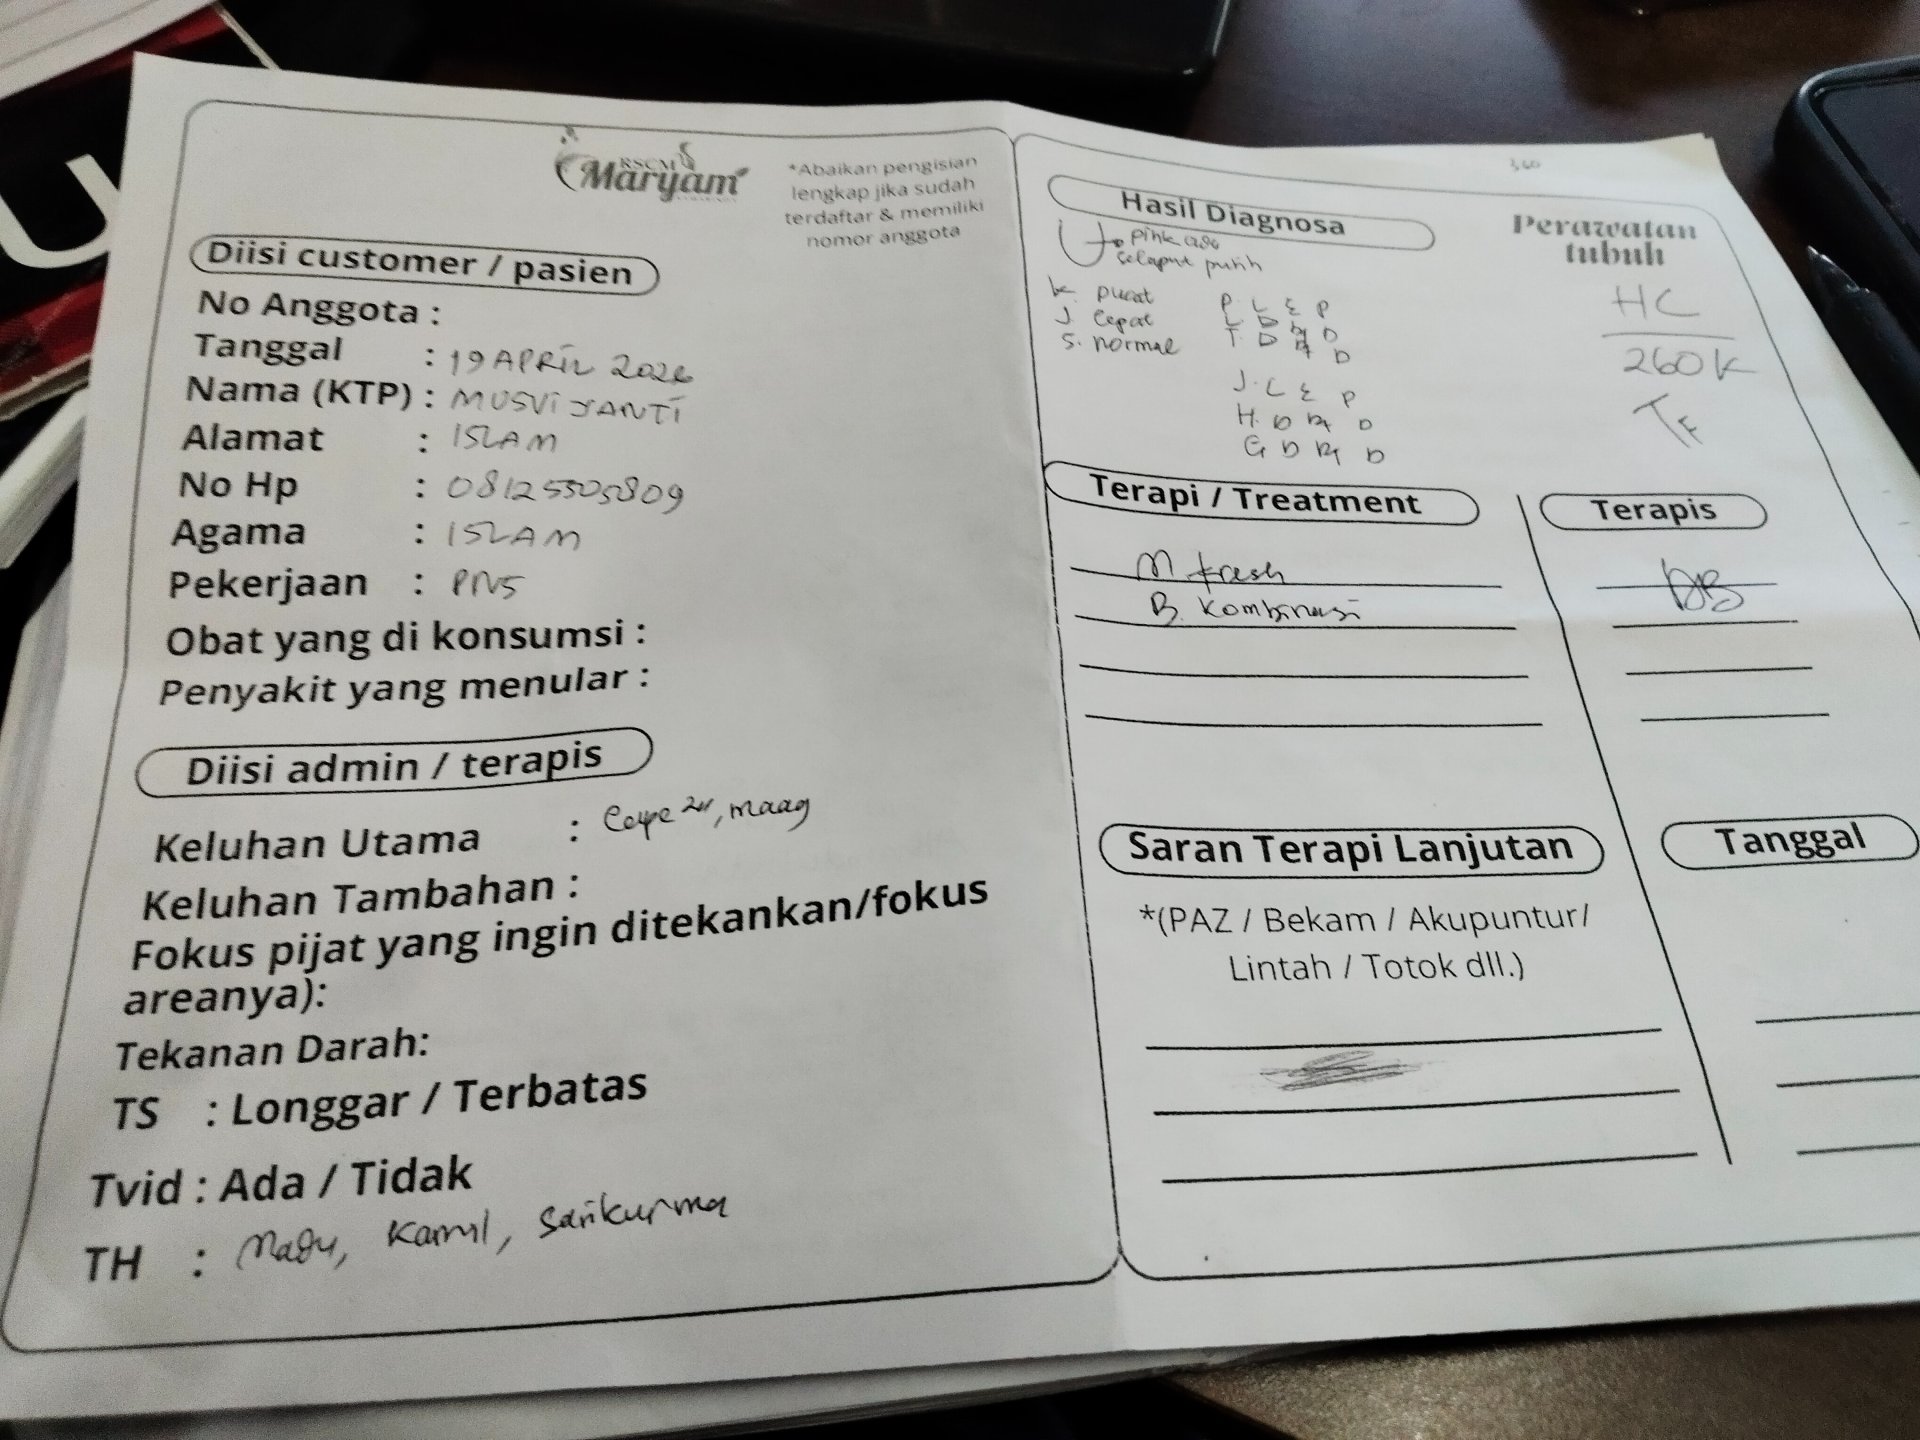 RSCM
Maryam
*Abaikan pengisian
lengkap jika sudah
terdaftar & memiliki
nomor anggota
Diisi customer / pasien
No Anggota :
Tanggal : 19 APRIL 2026
Nama (KTP) : MUSVIYANTI
Alamat : ISLAM
No Hp : 08125505809
Agama : ISLAM
Pekerjaan : PNS
Obat yang di konsumsi :
Penyakit yang menular :
Diisi admin / terapis
Keluhan Utama : Cape, maag
Keluhan Tambahan :
Fokus pijat yang ingin ditekankan/fokus
areanya):
Tekanan Darah:
TS : Longgar / Terbatas
Tvid : Ada / Tidak
TH : Madu, Kamil, Sarikurma
Hasil Diagnosa
pink ada
selaput putih
k. pucat
J. Cepat
S. normal
P. L E P
L. D D
T. D D
J. L E P
H. D D
G D D
360
Perawatan
tubuh
HC
260K
TF
Terapi / Treatment
M fresh
B. Kombinasi
Terapis
Saran Terapi Lanjutan
*(PAZ / Bekam / Akupuntur/
Lintah / Totok dll.)
Tanggal